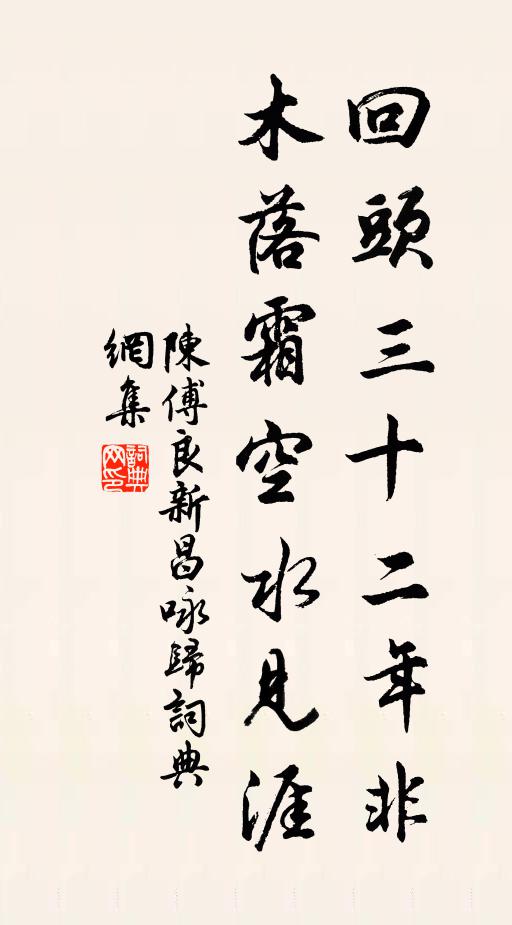 回頭三十二年非
木落霜空水見涯
陳傅良新昌咏歸詞典
網集
詞典
网印